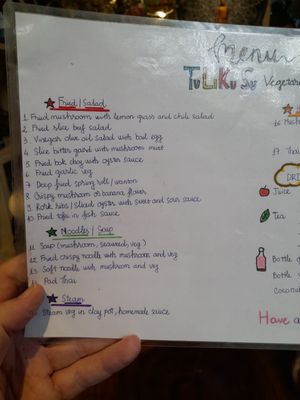 Menu
TuLiKu Su Vegetaria
Fried / Salad
1 Fried mushroom with lemon grass and chili salad
2 Fried slice beef salad
3 Vinegar, olive oil salad with boil egg
4 Slice bitter gourd with mushroom meat
5 Fried bok choy with oyster sauce
6 Fried garlic veg
7 Deep fried spring roll / wanton
8 Crispy mushroom or banana flower
9 Pork ribs / sliced oyster with sweet and sour sauce
10 Fried tofu in fish sauce
Noodles / Soup
11 Soup (mushroom, seaweed, veg)
12 Fried crispy noodle with mushroom and veg
13 Soft noodle with mushroom and veg
Pad Thai
Steam
Steam veg in clay pot, homemade sauce
16
17 Thai
DRI
Juice
Tea
Bottle
Bottle
Coconut
Have a